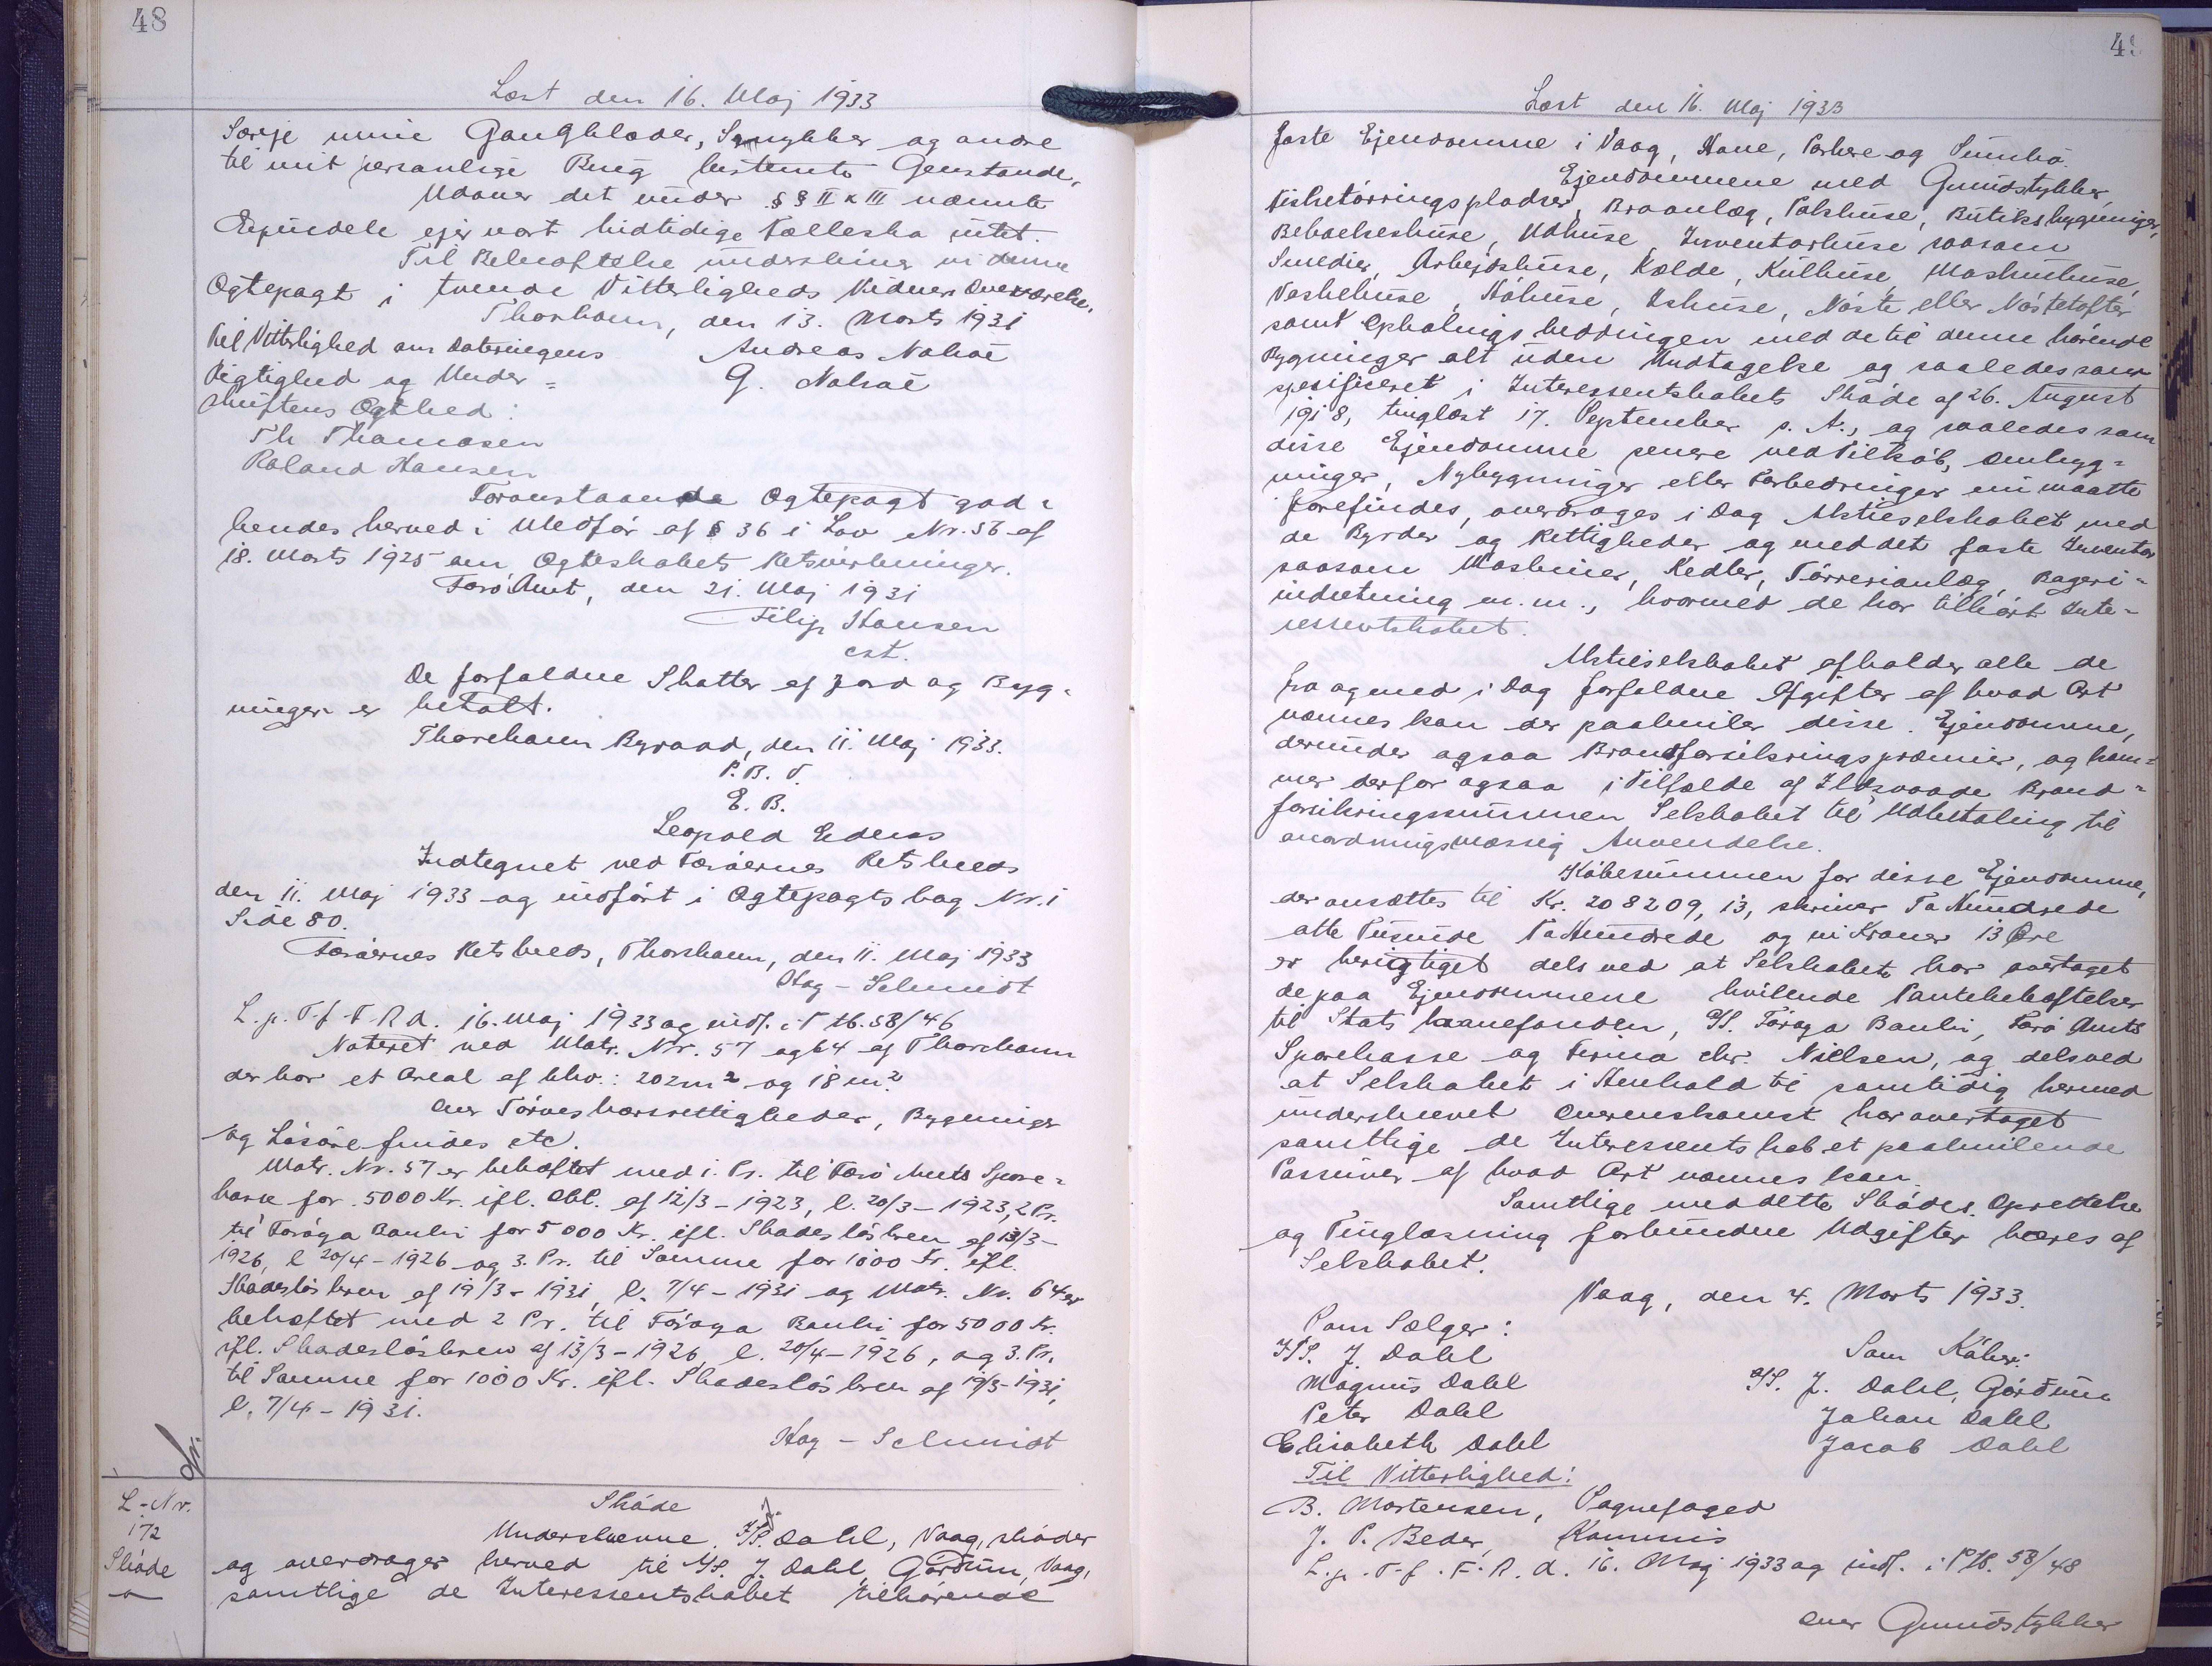 48
Læst den 16. Maj 1933
Særeje mine Gangklæder, Smykker og andre
til mit personlige Brug bestemte Genstande.
Udover det under §§ II & III nævnte
Ejendele ejer vort hidtidige Fællesbo intet.
Til Bekræftelse underskriver vi denne
Ægtepagt i tvende Vitterligheds Vidners Overværelse.
Thorshavn, den 13. Marts 1931
Til Vitterlighed om Dateringens Andreas Nolsøe
Rigtighed og Under= G. Nolsøe
skriftens Ægthed:
Th Thomasen
Roland Hansen
Foranstaaende Ægtepagt god=
kendes herved i Medfør af § 36 i Lov Nr. 56 af
18. Marts 1925 om Ægteskabets Retsvirkninger.
Færø Amt, den 21. Maj 1931
Filip Hansen
cst.
De forfaldne Skatter af Jord og Byg=
ninger er betalt.
Thorshavn Byraad, den 11. Maj 1933.
P. B. V.
E. B.
Leopold
Indtegnet ved Færøernes Retskreds
den 11. Maj 1933 og indført i Ægtepagtsbog Nr. 1
Side 80.
Færøernes Retskreds, Thorshavn, den 11. Maj 1933
Hag-Schmidt
L. p. T. f. F. R d. 16. Maj 1933 og indf. i Ptb. 58/46
Noteret ved Matr. Nr. 57 og 64 af Thorshavn
der har et Areal af hhv.: 202 m² og 18 m².
Om Tørveskærsrettigheder, Bygninger
og Løsøre findes etc.
Matr. Nr. 57 er behæftet med 1. Pr. til Færø Amts Spare=
kasse for 5000 Kr. ifl. Obl. af 12/3-1923, l. 20/3-1923, 2 Pr.
til Føroya Banki for 5000 Kr. ifl. Skadesløsbrev af 13/3-
1926, l 20/4-1926 og 3. Pr. til Samme for 1000 Kr. ifl.
Skadesløsbrev af 19/3-1931, l. 7/4-1931 og Matr. Nr. 64 er
behæftet med 2 Pr. til Føroya Banki for 5000 Kr.
ifl. Skadesløsbrev af 13/3-1926, l. 20/4-1926, og 3. Pr.
til Samme for 1000 Kr. ifl. Skadesløsbrev af 19/3-1931,
l. 7/4-1931.
Hag-Schmidt
L-Nr.
172
Skøde
Skøde
Underskrevne I/S. J. Dahl, Vaag, skøder
og overdrager herved til A/S. J. Dahl, Gørdum, Vaag,
samtlige de Interessentskabet tilhørende
49
Læst den 16. Maj 1933
faste Ejendomme i Vaag, Hove, Porkere og Sumbø.
Ejendommene med Grundstykker,
Fisketørringspladser, Braanlæg, Pakhuse, Butiksbygninger,
Beboelseshuse, Udhuse, Inventarhuse saasom
Smedier, Arbejdshuse, Kælde, Kulhuse, Maskinhuse,
Vaskehuse, Höhuse, Ishuse, Nöste eller Nöstetofter
samt Ophalingsbeddingen med de til denne hørende
Bygninger alt uden Undtagelse og saaledes som
spesifiseret i Interessentskabets Skøde af 26. August
1918, tinglæst 17. September s. A., og saaledes som
disse Ejendomme senere ved Tilkøb, Ombyg=
ninger, Nybygninger eller Forbedringer nu maatte
forefindes, overdrages i Dag Aktieselskabet med
de Byrder og Rettigheder og med det faste Inventar
saasom Maskiner, Kedler, Tørrerianlæg, Bageri=
indretning m.m., hvormed de har tilhørt Inte=
ressentskabet.
Aktieselskabet afholder alle de
fra og med i Dag forfaldne Afgifter af hvad Art
nævnes kan der paahviler disse Ejendomme,
derunder ogsaa Brandforsikringspræmier, og kom=
mer derfor ogsaa i Tilfælde af Ildsvaade Brand=
forsikringssummen Selskabet til Udbetaling til
anordningsmæssig Anvendelse.
Købesummen for disse Ejendomme,
der ansættes til Kr. 208209,13, skriver To Hundrede
otte Tusinde To Hundrede og ni Kroner 13 Øre
er berigtiget dels ved at Selskabet har overtaget
de paa Ejendommene hvilende Pantebehæftelser
til Statslaanefonden, A/S. Føroya Banki, Færø Amts
Sparekasse og Firma Chr. Nielsen, og dels ved
at Selskabet i Henhold til samtidig hermed
underskrevet Overenskomst har overtaget
samtlige de Interessentskabet paahvilende
Passiver af hvad Art nævnes kan.
Samtlige med dette Skødes Oprettelse
og Tinglæsning forbundne Udgifter bæres af
Selskabet.
Vaag, den 4. Marts 1933.
Som Sælger:
Som Køber:
I/S. J. Dahl
A/S. J. Dahl, Gørdum
Magnus Dahl
Johan Dahl
Peter Dahl
Jacob Dahl
Elisabeth Dahl
Til Vitterlighed:
B. Mortensen, Sognefoged
J. P. Beder, Kommis
L. p. T. f. F. R. d. 16. Maj 1933 og indf. i Ptb. 58/48
Om Grundstykker